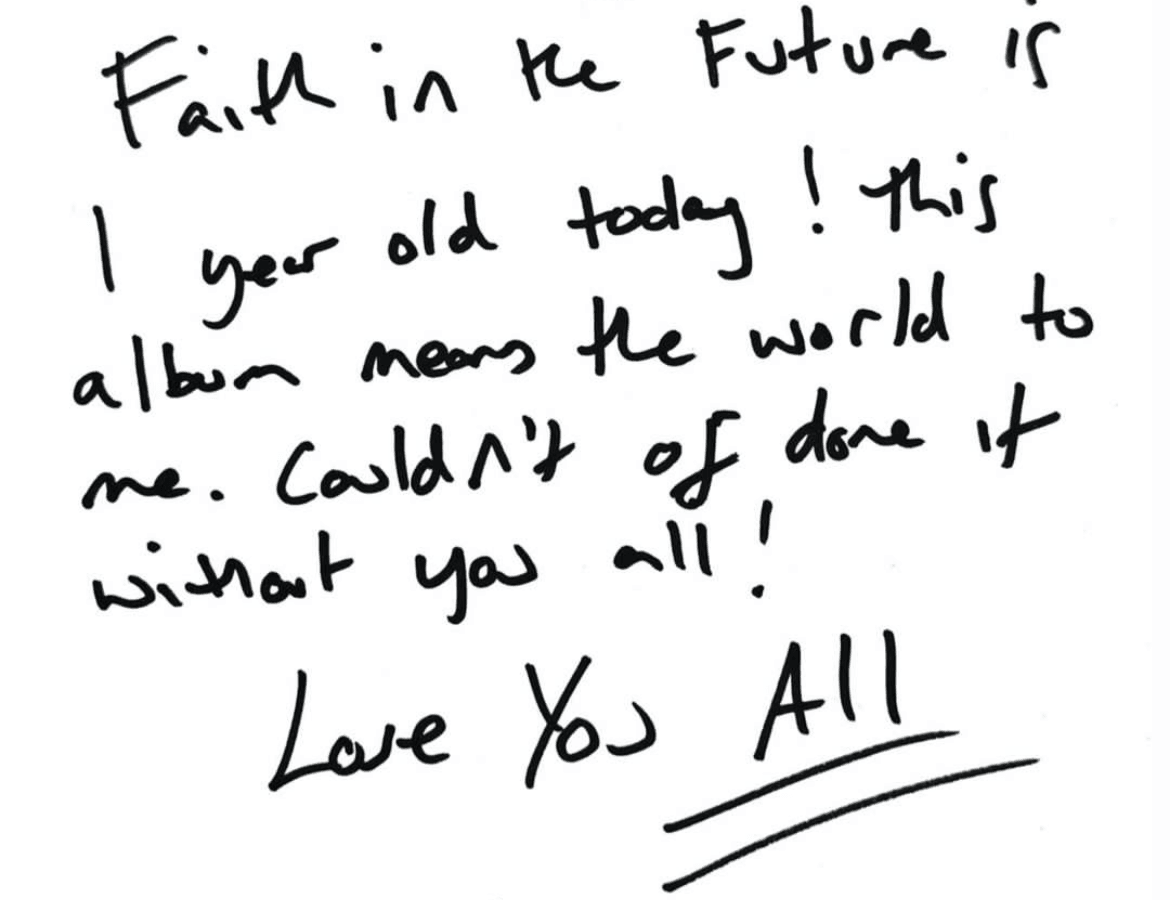 Faith in the Future is
1 year old today! This
album means the world to
me. Couldn't of done it
without you all!
Love You All